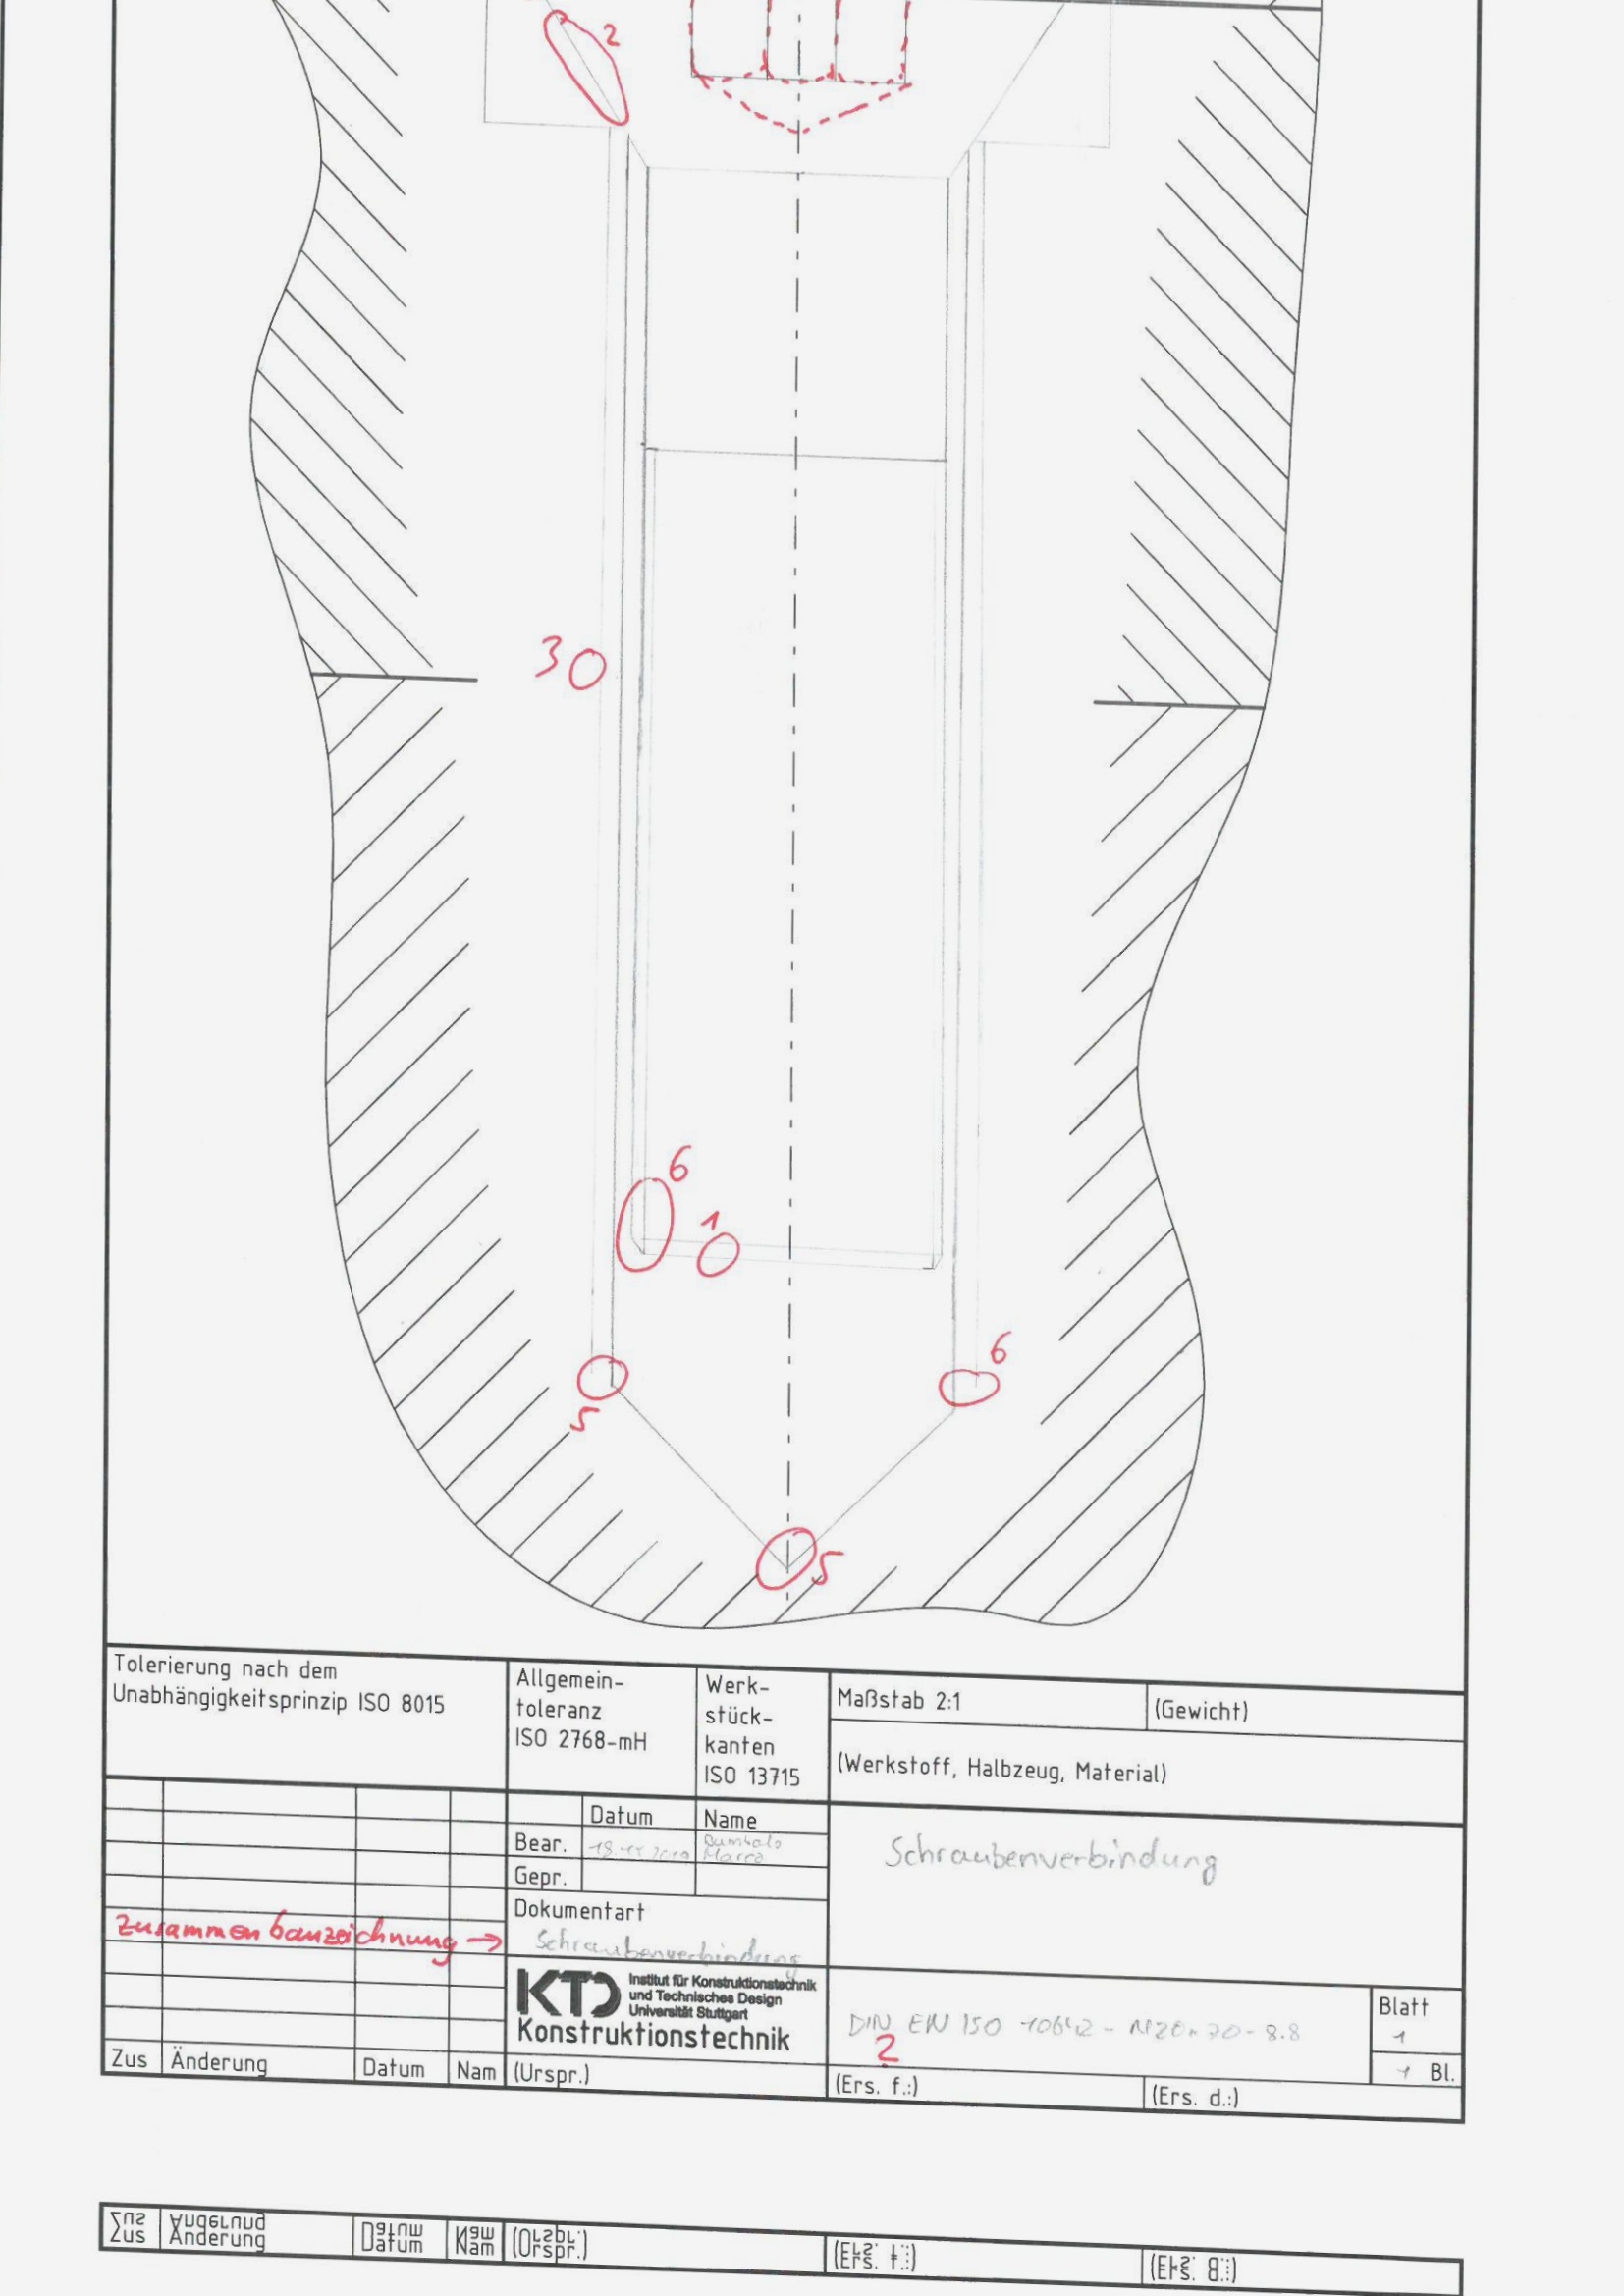 2
30
6
1
6
5
5
Tolerierung nach dem
Unabhängigkeitsprinzip ISO 8015
Allgemein-
toleranz
ISO 2768-mH
Werk-
stück-
kanten
ISO 13715
Maßstab 2:1
(Gewicht)
(Werkstoff, Halbzeug, Material)
Datum
Name
Bear.
Marco
Gepr.
Schraubenverbindung
Dokumentart
Zusammenbauzeichnung →
Schraubenverbindung
KTD
Institut für Konstruktionstechnik
und Technisches Design
Universität Stuttgart
Konstruktionstechnik
DIN EN ISO 10642 - M20x70-8.8
2
Blatt
1
1 Bl.
Zus
Änderung
Datum
Nam
(Urspr.)
(Ers. f.:)
(Ers. d.:)
Zus
Änderung
Datum
Nam